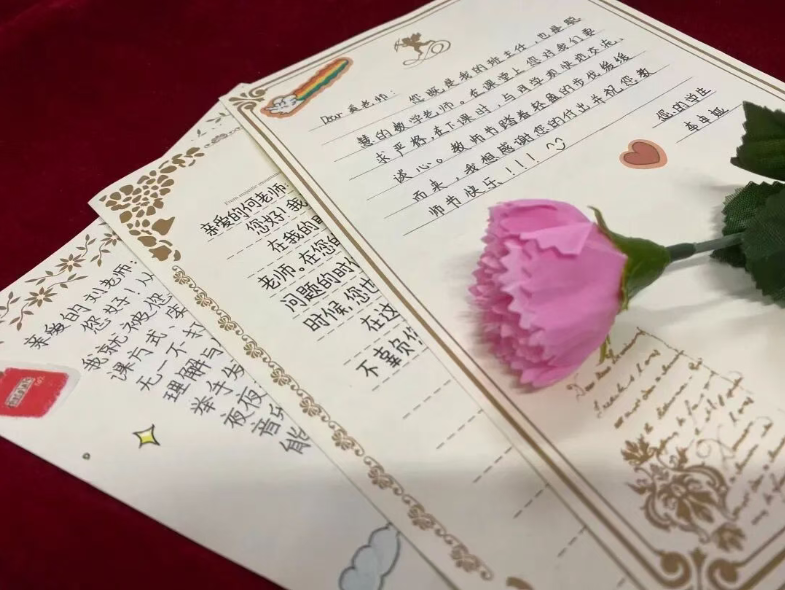 Dear 老师:
您既是我的班主任,也是聪
慧的数学老师。在课堂上您对我们要
求严格,在下课时,与同学愉快地交流、
谈心。教师节踏着轻盈的步伐缓缓
而来,我想感谢您的付出并祝您教
师节快乐!!!
您的学生
亲爱的何老师:
您好!我
在我的
老师。在您的
问题的时
时候,您也
在这
不辜负你
亲爱的刘老师:
您好!从
我就被您
课方式、
无一不
理解与
举手发
夜夜
音乐
能